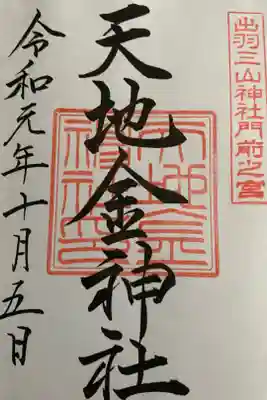 出羽三山神社門前之宮
天地金神社
令和元年十月五日